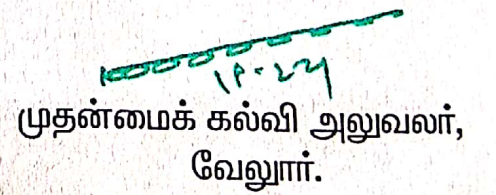 முதன்மைக் கல்வி அலுவலர்,
வேலூர்.